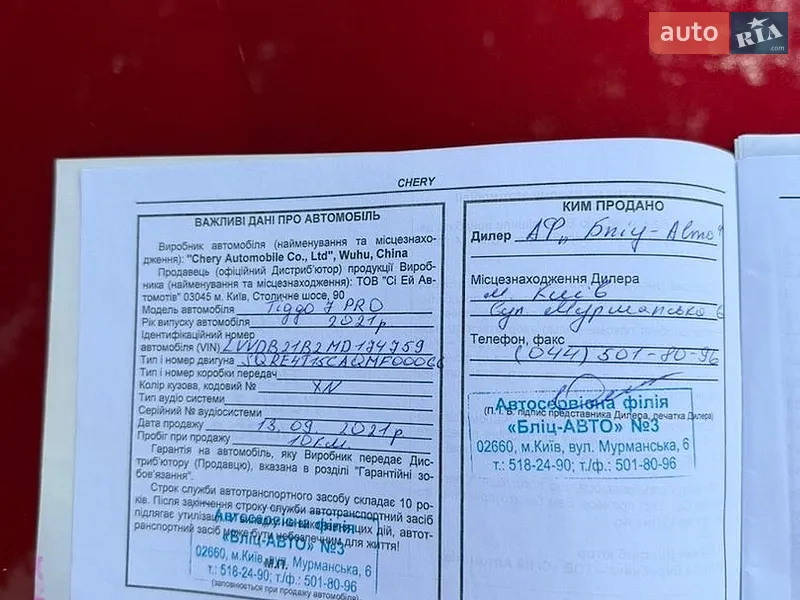 auto RIA .com
CHERY
ВАЖЛИВІ ДАНІ ПРО АВТОМОБІЛЬ
Виробник автомобіля (найменування та місцезнахо-
дження): "Chery Automobile Co., Ltd", Wuhu, China
Продавець (офіційний Дистриб'ютор) продукції Вироб-
ника (найменування та місцезнаходження): ТОВ "Сі Ей Ав-
томотів" 03045 м. Київ, Столичне шосе, 90
Модель автомобіля Tiggo 7 PRO
Рік випуску автомобіля 2021р
Ідентифікаційний номер
автомобіля (VIN) LVVDB21B2MD174759
Тип і номер двигуна SQRE4T15CAQMF00066
Тип і номер коробки передач
Колір кузова, кодовий № XN
Тип аудіо системи
Серійний № аудіосистеми
Дата продажу 13.09 2021р
Пробіг при продажу 10км
Гарантія на автомобіль, яку Виробник передає Дис-
триб'ютору (Продавцю), вказана в розділі "Гарантійні зо-
бов'язання".
Строк служби автотранспортного засобу складає 10 ро-
ків. Після закінчення строку служби автотранспортний засіб
підлягає утилізації, дій, автот-
ранспортний засіб може бути небезпечним для життя!
Автосервісна філія
«Бліц-АВТО» №3
02660, м.Київ, вул. Мурманська, 6
М.П.
т.: 518-24-90; т./ф.: 501-80-96
(заповнюється при продажу автомобіля)
КИМ ПРОДАНО
Дилер АФ „Бліц-Авто"
Місцезнаходження Дилера
м. Київ
вул. Мурманська 6
Телефон, факс
(044) 501-80-96
(П.І.Б. підпис представника Дилера, печатка Дилера)
Автосервісна філія
«Бліц-АВТО» №3
02660, м.Київ, вул. Мурманська, 6
т.: 518-24-90; т./ф.: 501-80-96